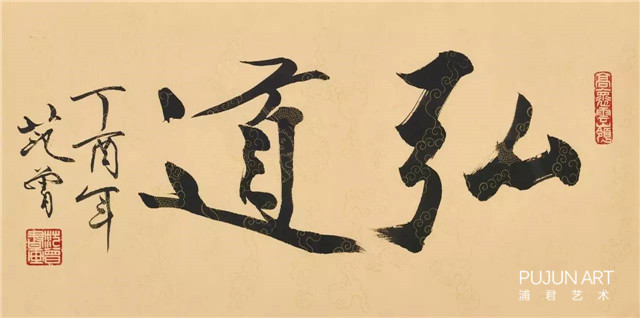 弘道
丁酉年
范曾
PUJUN ART
浦君艺术